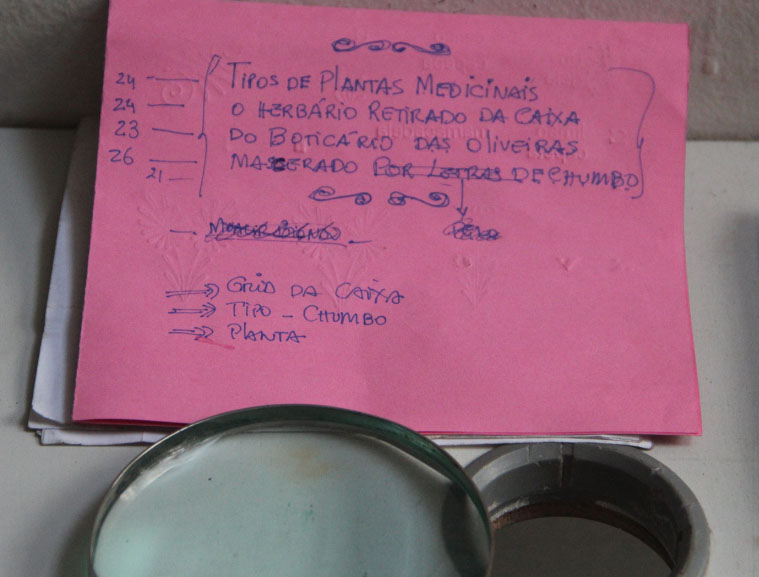 24 — TIPOS DE PLANTAS MEDICINAIS
24 — O HERBÁRIO RETIRADO DA CAIXA
23 — DO BOTICÁRIO DAS OLIVEIRAS
26 — MACERADO POR LETRAS DE CHUMBO
21 —
⇒ GRID DA CAIXA
⇒ TIPO - CHUMBO
⇒ PLANTA